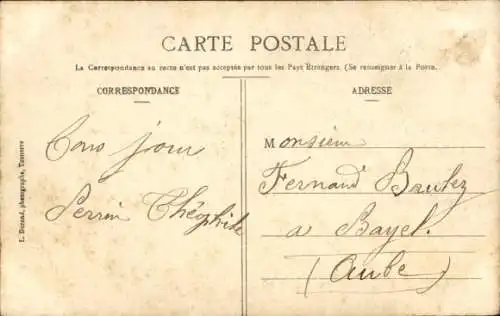 CARTE POSTALE
La Correspondance au recto n'est pas acceptée par tous les Pays Étrangers. (Se renseigner à la Poste.
CORRESPONDANCE
ADRESSE
Bons jour
Perrin Théophile
Monsieur
Fernand
a Bayel.
(Aube)
photographe, Tonnerre